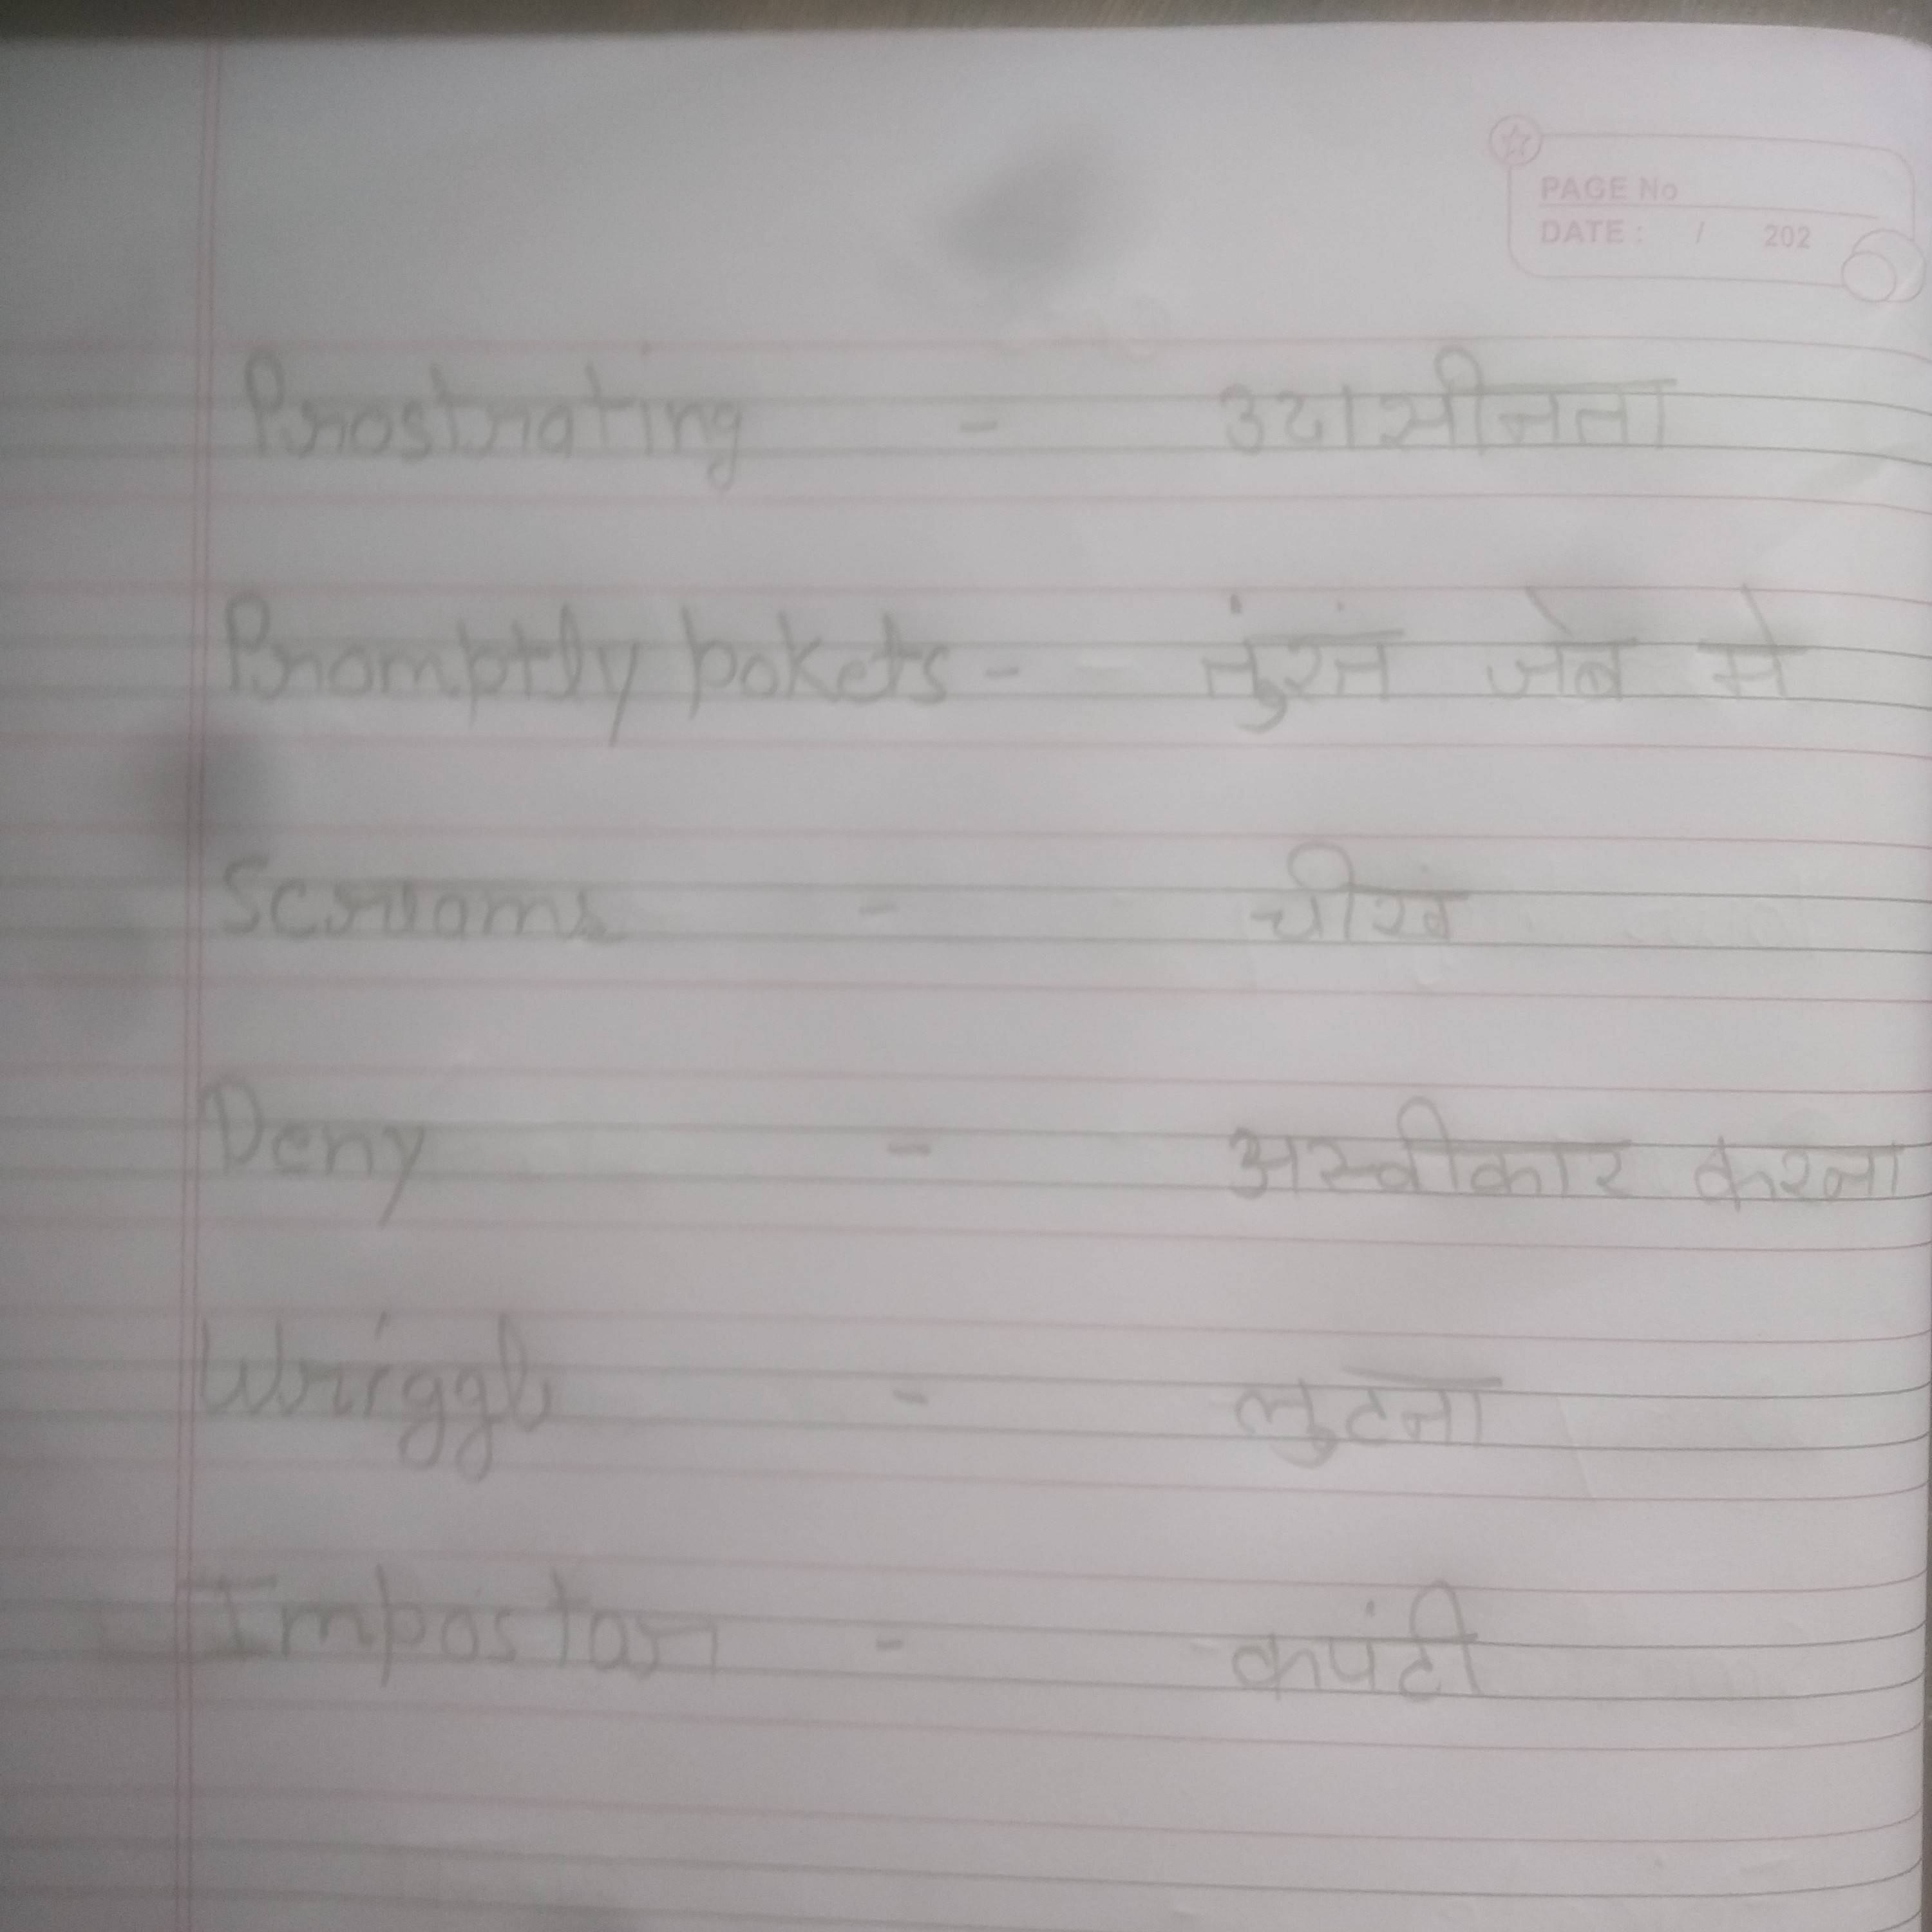 PAGE No
DATE : / 202
Prostrating - उदासीनता
Promptly pokets - तुंरतं जेब मे
Screams - चीखं
Deny - अस्वीकार करना
Wriggle - लुटना
Impostor - कपंटी